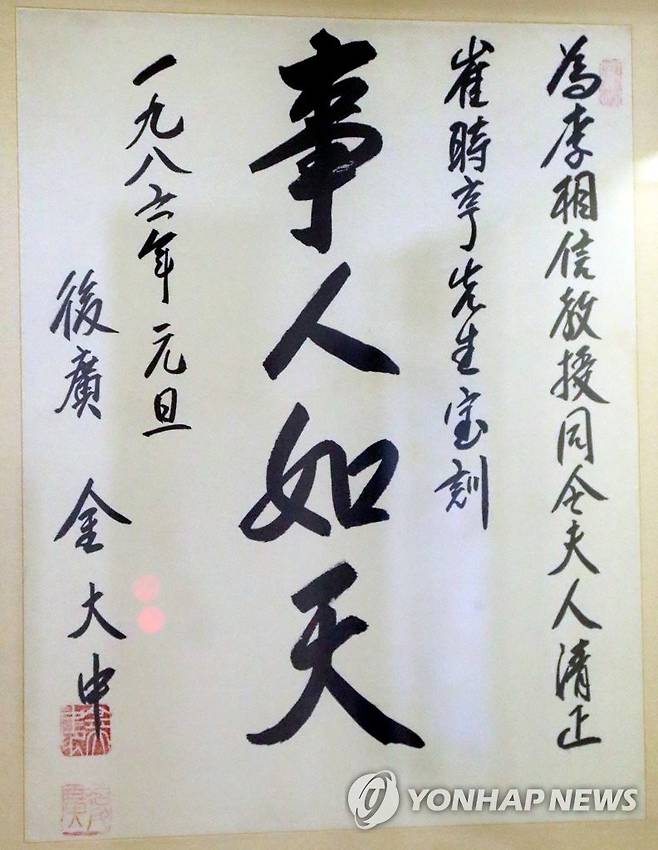 為李相信教授同令夫人清正
崔時亨先生宝訓
事人如天
一九八六年 元旦
後廣 金大中
YONHAP NEWS